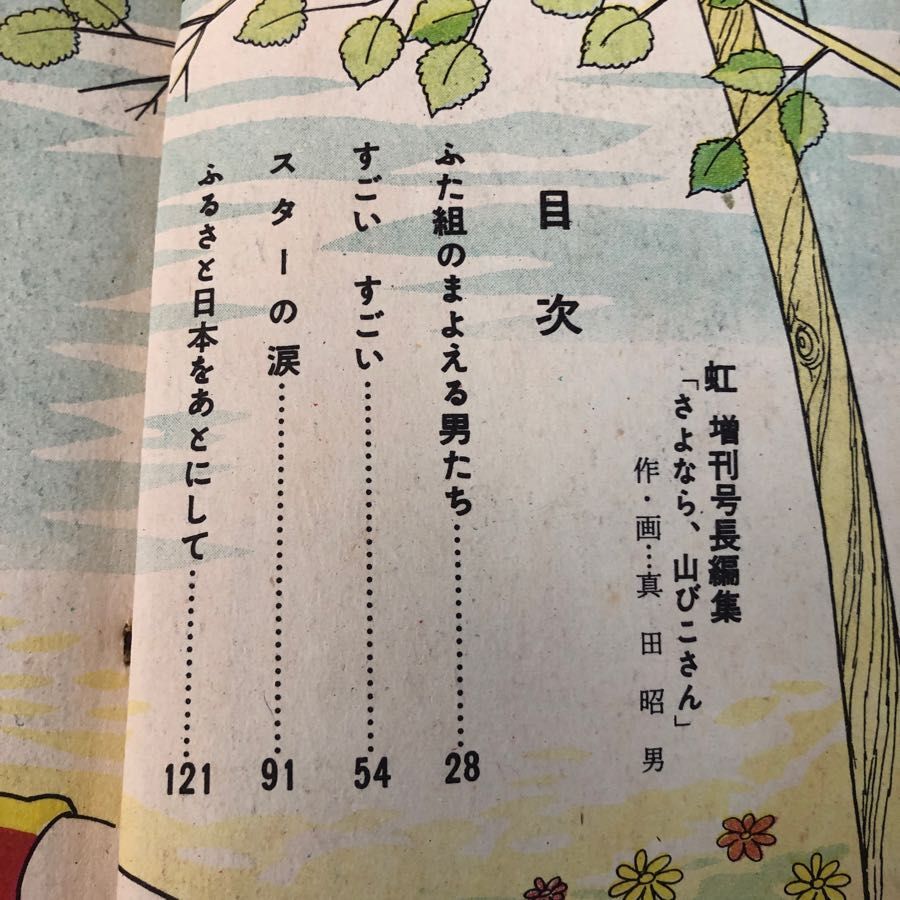 虹 増刊号長編集
「さよなら、山びこさん」
作・画…真田昭男
目次
ふた組のまよえる男たち…………28
すごい すごい…………………54
スターの涙…………………91
ふるさと日本をあとにして…………121